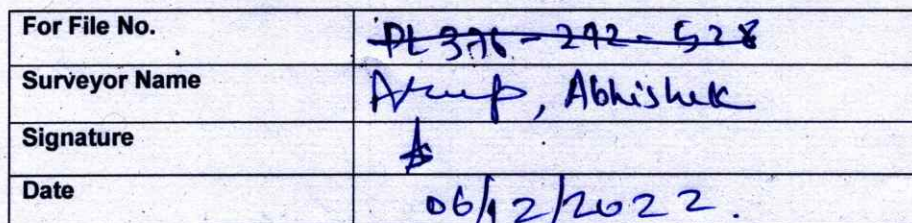 For File No. PL376-292-528
Surveyor Name Arup, Abhishek
Signature
Date 06/12/2022.